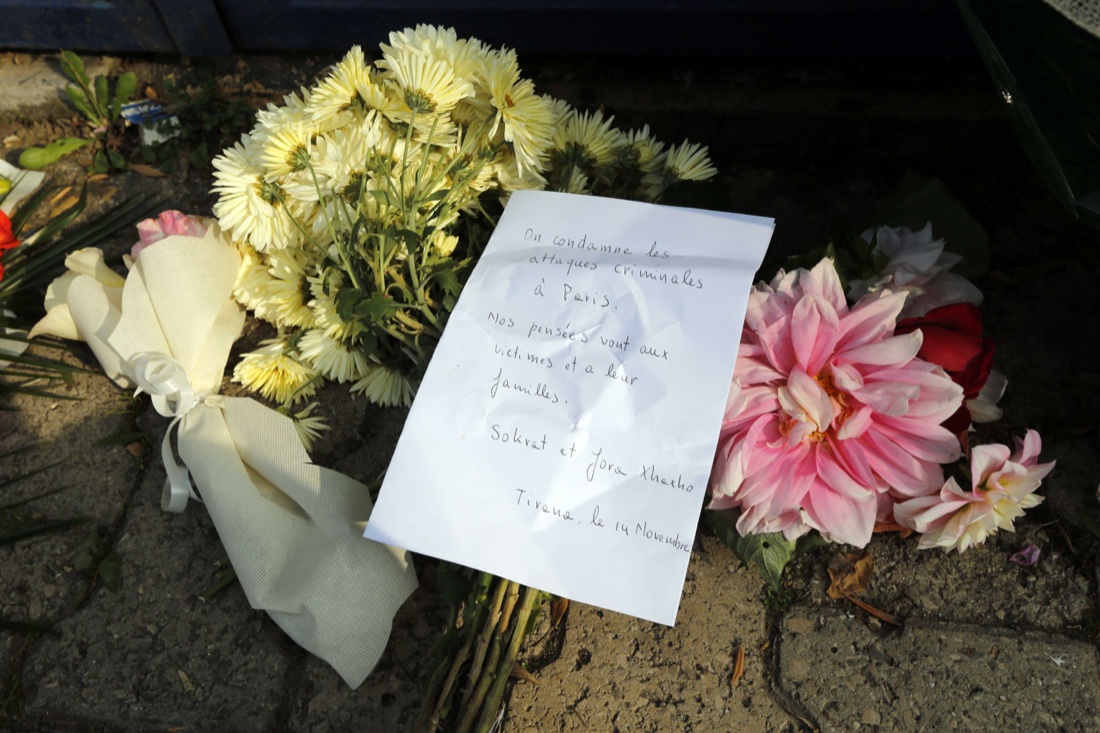 On condamne les
attaques criminales
à Paris.
Nos pensées vont aux
victimes et a leur
familles.
Sokrat et Jora Xhaxho
Tirana, le 14 Novembre